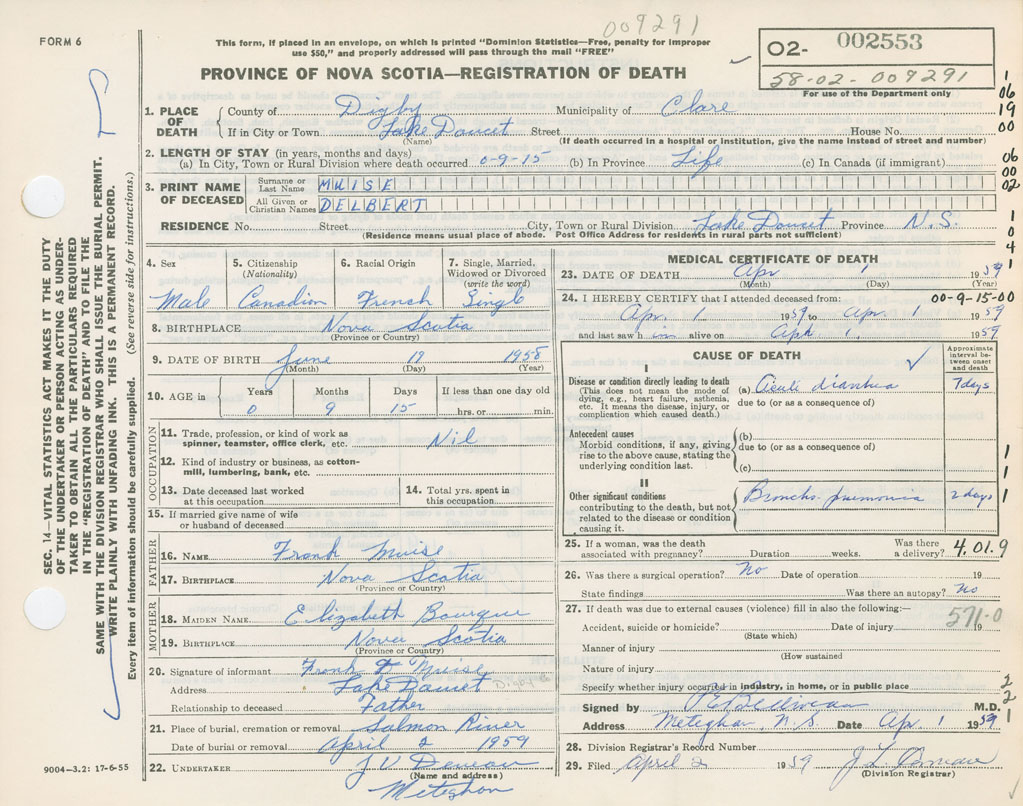 009291
FORM 6
This form, if placed in an envelope, on which is printed "Dominion Statistics—Free, penalty for improper
use $50," and properly addressed will pass through the mail "FREE"
PROVINCE OF NOVA SCOTIA—REGISTRATION OF DEATH
02- 002553
58-02-009291
For use of the Department only
1. PLACE OF DEATH County of Digby Municipality of Clare
If in City or Town Lake Doucet Street House No.
(Name) (If death occurred in a hospital or institution, give the name instead of street and number)
2. LENGTH OF STAY (in years, months and days)
(a) In City, Town or Rural Division where death occurred 0-9-15 (b) In Province Life (c) In Canada (if immigrant)
3. PRINT NAME OF DECEASED Surname or Last Name MUISE
All Given or Christian Names DELBERT
RESIDENCE No. Street City, Town or Rural Division Lake Doucet Province N.S.
(Residence means usual place of abode. Post Office Address for residents in rural parts not sufficient)
4. Sex Male
5. Citizenship (Nationality) Canadian
6. Racial Origin French
7. Single, Married, Widowed or Divorced (write the word) Single
8. BIRTHPLACE Nova Scotia
(Province or Country)
9. DATE OF BIRTH June 17 1958
(Month) (Day) (Year)
10. AGE in Years Months Days If less than one day old
0 9 15 hrs. or min.
OCCUPATION
11. Trade, profession, or kind of work as spinner, teamster, office clerk, etc. Nil
12. Kind of industry or business, as cotton-mill, lumbering, bank, etc.
13. Date deceased last worked at this occupation
14. Total yrs. spent in this occupation
15. If married give name of wife or husband of deceased
FATHER
16. NAME Frank Muise
17. BIRTHPLACE Nova Scotia
(Province or Country)
MOTHER
18. MAIDEN NAME Elizabeth Bourque
19. BIRTHPLACE Nova Scotia
(Province or Country)
20. Signature of informant Frank Muise
Address Lake Doucet Digby Co
Relationship to deceased Father
21. Place of burial, cremation or removal Salmon River
Date of burial or removal April 2 1959
22. UNDERTAKER J V Deveau
(Name and address)
Meteghan
MEDICAL CERTIFICATE OF DEATH
23. DATE OF DEATH Apr 1 1959
(Month) (Day) (Year)
24. I HEREBY CERTIFY that I attended deceased from: 00-9-15-00
Apr. 1 1959 to Apr 1 1959
and last saw h im alive on Apr. 1 1959
CAUSE OF DEATH
Approximate interval between onset and death
I
Disease or condition directly leading to death
(This does not mean the mode of dying, e.g., heart failure, asthenia, etc. It means the disease, injury, or complication which caused death.)
(a) Acute diarrhea 7 days
due to (or as a consequence of)
Antecedent causes
Morbid conditions, if any, giving rise to the above cause, stating the underlying condition last.
(b)
due to (or as a consequence of)
(c)
II
Other significant conditions
contributing to the death, but not related to the disease or condition causing it.
Broncho-pneumonia 2 days
25. If a woman, was the death associated with pregnancy? Duration weeks. Was there a delivery?
4.01.9
26. Was there a surgical operation? No Date of operation 19
State findings Was there an autopsy? No
27. If death was due to external causes (violence) fill in also the following:—
571-0
Accident, suicide or homicide? Date of injury 19
(State which)
Manner of injury
(How sustained
Nature of injury
Specify whether injury occurred in industry, in home, or in public place
Signed by P E Belliveau M.D.
Address Meteghan, N.S. Date Apr. 1 1959
28. Division Registrar's Record Number
29. Filed April 2 1959 J L Comeau
(Division Registrar)
SEC. 14—VITAL STATISTICS ACT MAKES IT THE DUTY
OF THE UNDERTAKER OR PERSON ACTING AS UNDER-
TAKER TO OBTAIN ALL THE PARTICULARS REQUIRED
IN THE "REGISTRATION OF DEATH" AND TO FILE THE
SAME WITH THE DIVISION REGISTRAR WHO SHALL ISSUE THE BURIAL PERMIT.
WRITE PLAINLY WITH UNFADING INK. THIS IS A PERMANENT RECORD.
Every item of information should be carefully supplied. (See reverse side for instructions.)
9004-3.2: 17-6-55
1
06
19
00
06
00
02
1
0
4
1
1
1
1
2
2
1